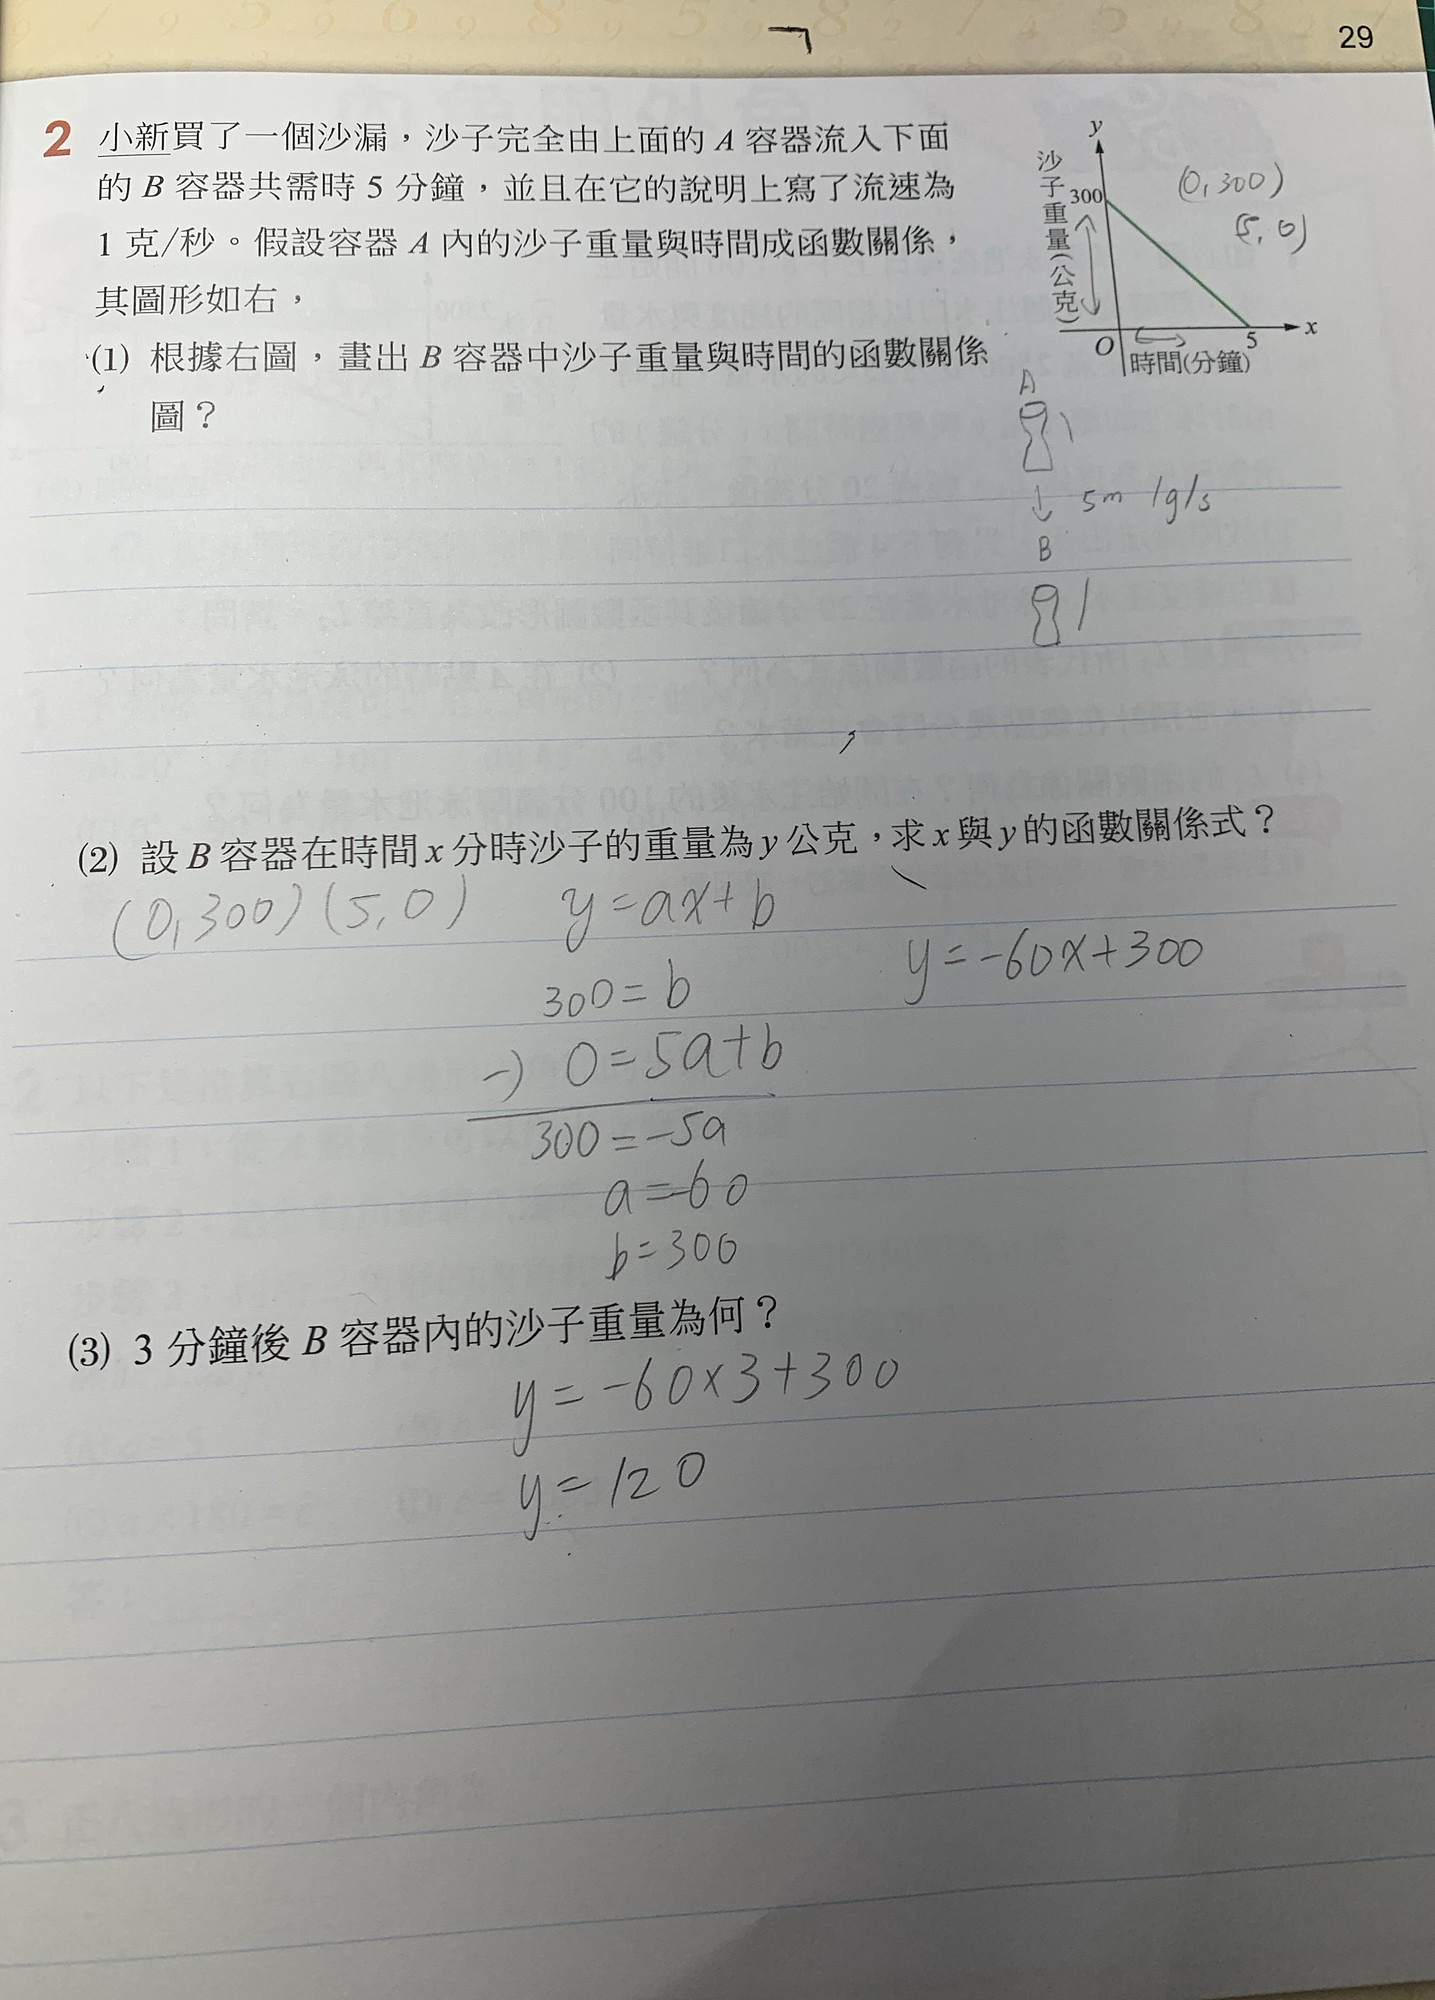 29
2 小新買了一個沙漏，沙子完全由上面的 A 容器流入下面
的 B 容器共需時 5 分鐘，並且在它的說明上寫了流速為
1 克/秒。假設容器 A 內的沙子重量與時間成函數關係，
其圖形如右，
(1) 根據右圖，畫出 B 容器中沙子重量與時間的函數關係
圖？
y
沙子重量(公克)
300
(0,300)
(5,0)
O
5
x
時間(分鐘)
A
5m 1g/s
B
(2) 設 B 容器在時間 x 分時沙子的重量為 y 公克，求 x 與 y 的函數關係式？
(0,300) (5,0) y=ax+b
y=-60x+300
300=b
-) 0=5a+b
300=-5a
a=-60
b=300
(3) 3 分鐘後 B 容器內的沙子重量為何？
y=-60×3+300
y=120